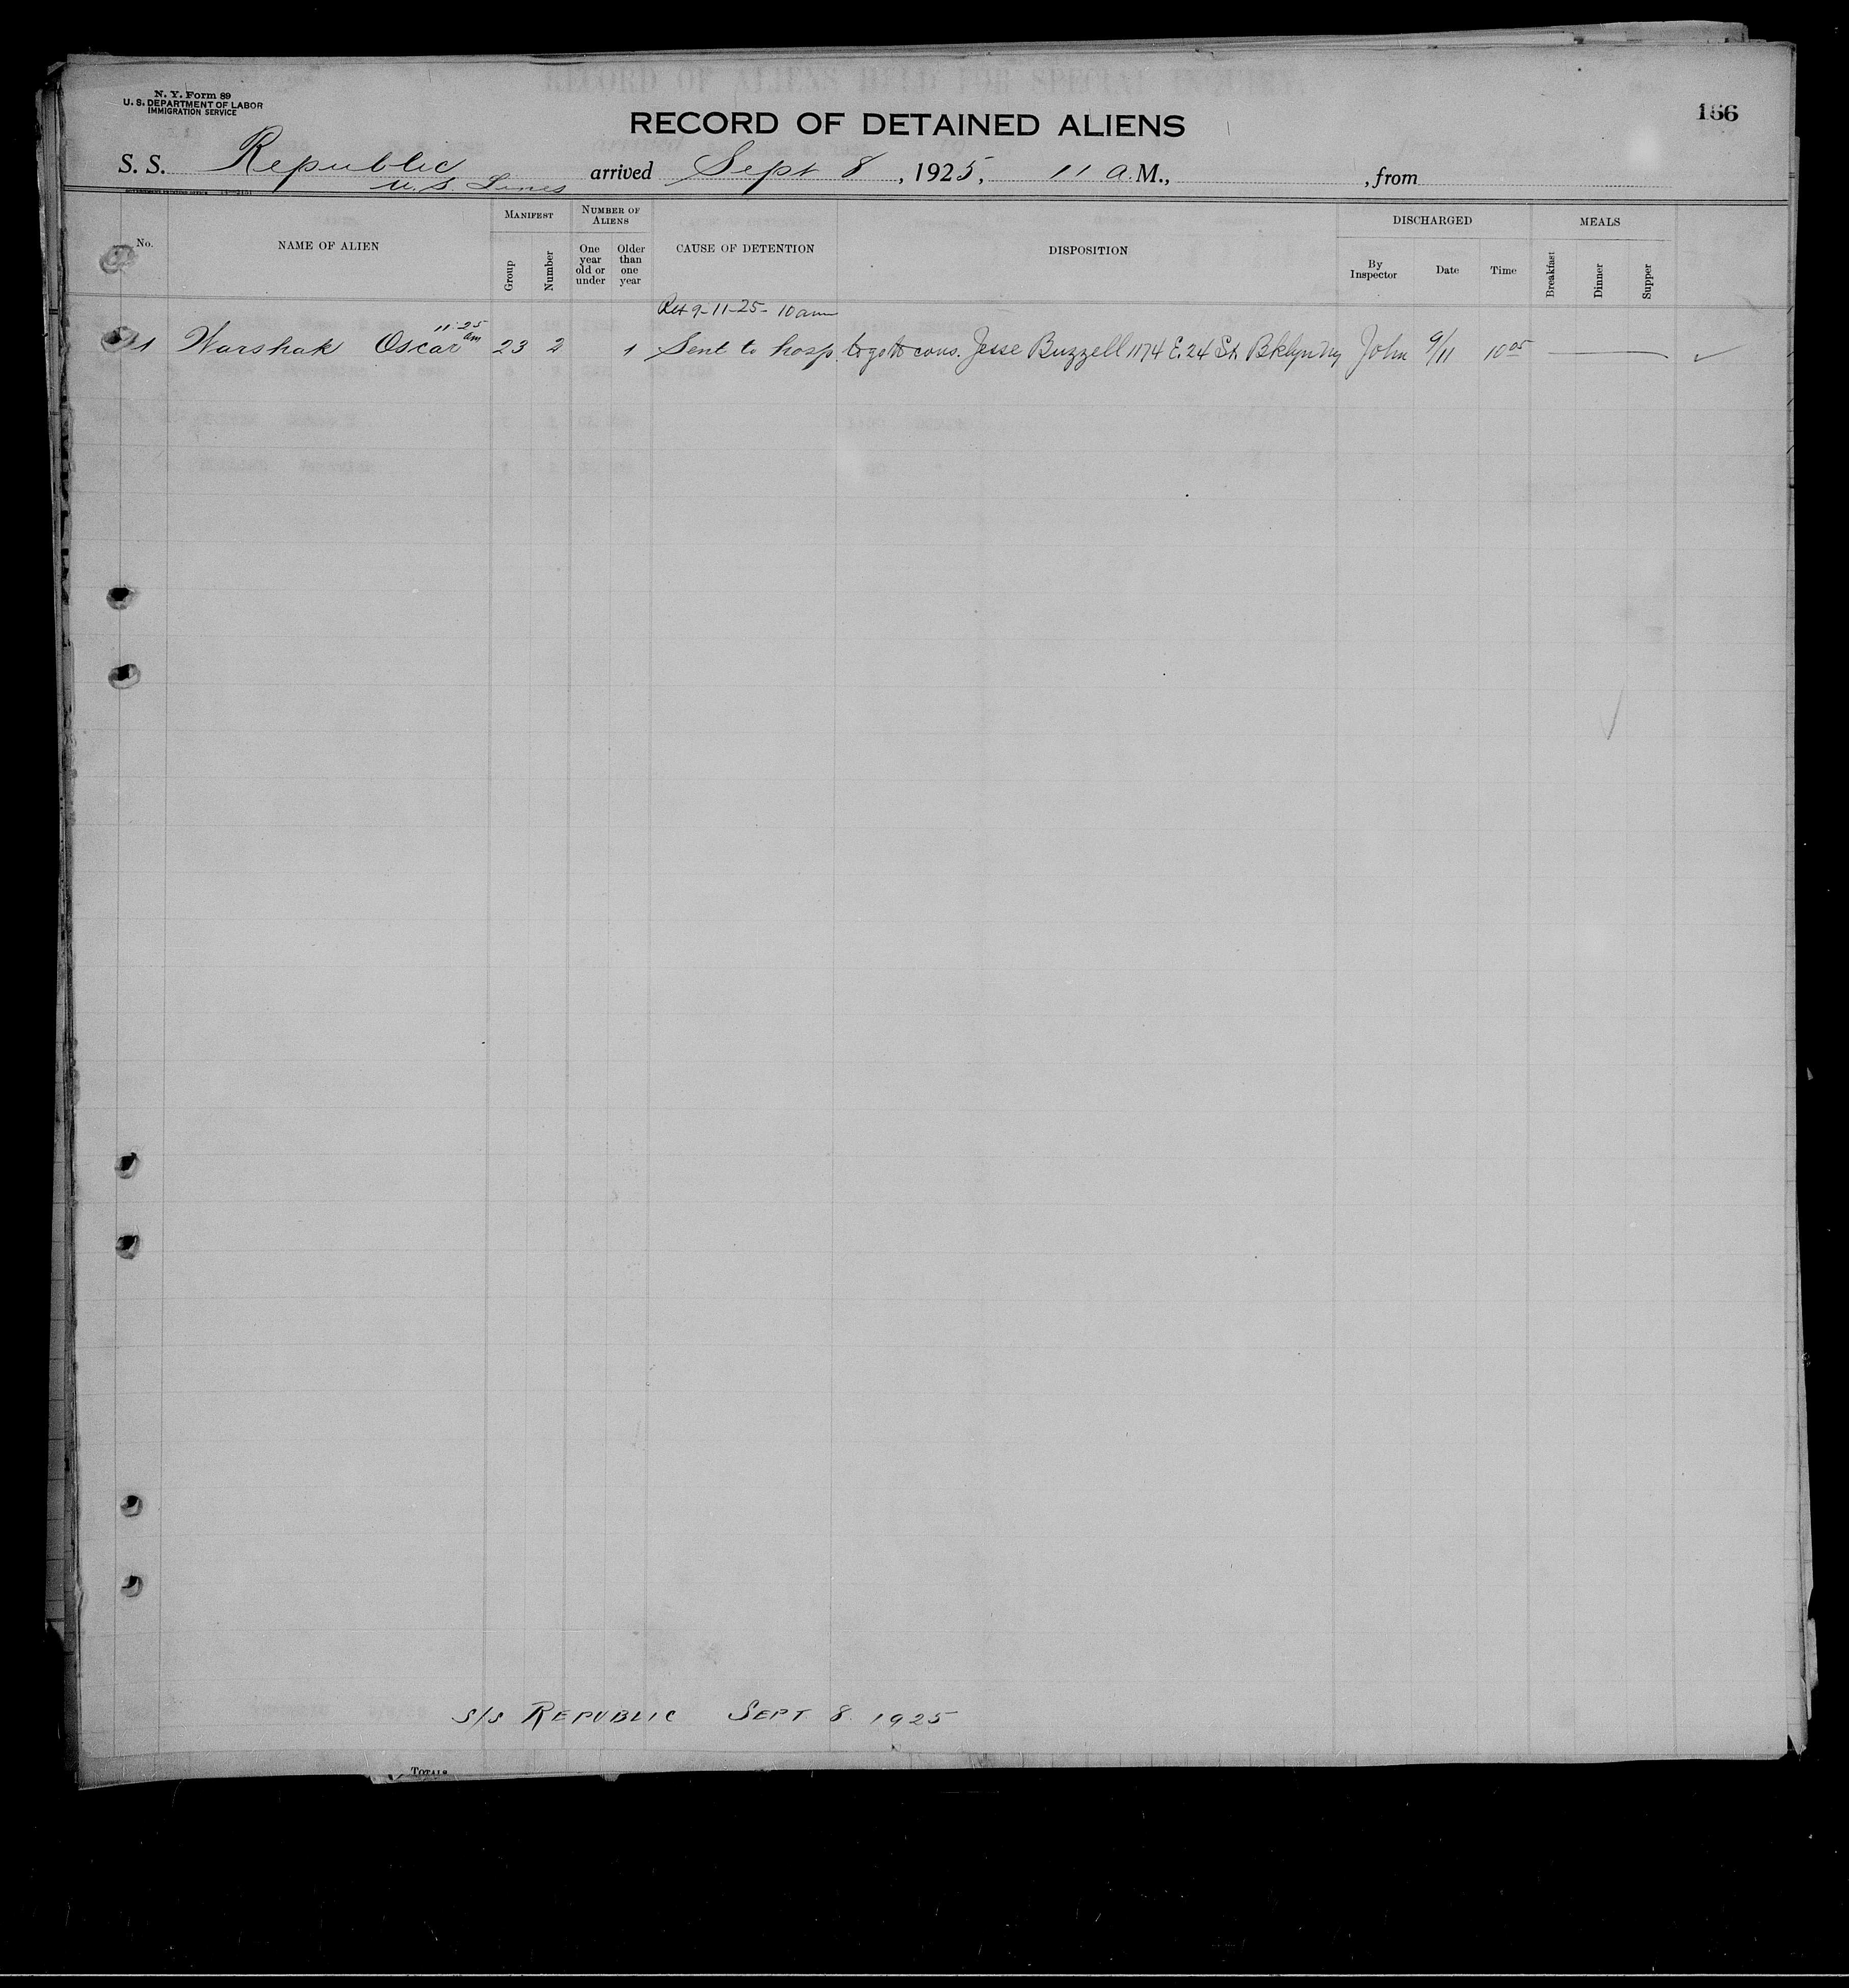 N. Y. Form 89
U. S. DEPARTMENT OF LABOR
IMMIGRATION SERVICE
RECORD OF DETAINED ALIENS
166
S. S. Republic arrived Sept 8, 1925, 11 A.M., , from
U.S. Lines
No. NAME OF ALIEN MANIFEST NUMBER OF ALIENS CAUSE OF DETENTION DISPOSITION DISCHARGED MEALS
Group Number One year old or under Older than one year By Inspector Date Time Breakfast Dinner Supper
Ret 9-11-25- 10am
11:25 am
1 Warshak Oscar 23 2 1 Sent to hosp. to go to cous. Jesse Buzzell 1174 E. 24 St. Bklyn Ny John 9/11 10 05
S/S REPUBLIC SEPT 8 1925
TOTALS